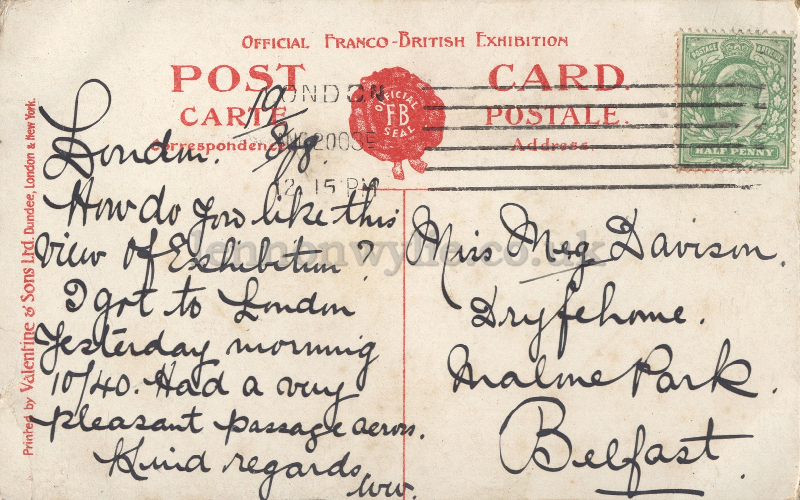 OFFICIAL FRANCO-BRITISH EXHIBITION
POST CARD.
CARTE POSTALE.
OFFICIAL
FB
SEAL
Correspondence
Address.
LONDON
12.15 PM
POSTAGE
HALFPENNY
London. 19/8/8.
How do you like this
view of Exhibition?
I got to London
yesterday morning
10/40. Had a very
pleasant passage across.
Kind regards
WW.
Miss Meg Davison.
Dryfehome.
Malone Park.
Belfast.
Printed by Valentine & Sons Ltd. Dundee, London & New York.
lennonwylie.co.uk